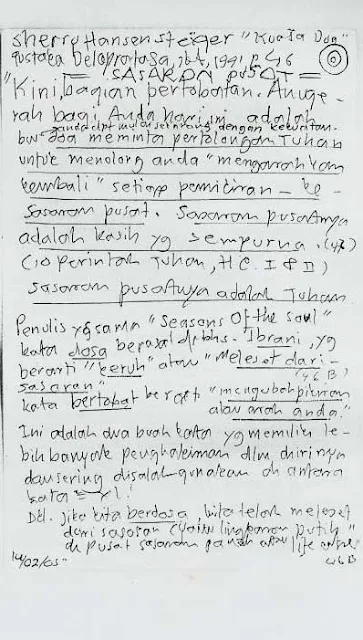 Sherry Hansen Steiger "Kuasa Doa"
Pustaka Delapratasa, Jkt, 1991 p. 46
= SASARAN PUSAT =
"Kini, bagian pertobatan. Anuge-
rah bagi Anda hari ini adalah
anda dpt mulai sekarang dengan kekuatan.
berdoa meminta pertolongan Tuhan
untuk menolong anda "mengarahkan
kembali" setiap pemikiran – ke
sasaran pusat. Sasaran pusatnya
adalah kasih yg sempurna. (47)
(10 perintah Tuhan, H.C. I & II)
Sasaran pusatnya adalah Tuhan
Penulis yg sama "Seasons Of the Soul"
kata dosa berasal dr bhs. Ibrani, yg
berarti "keruh" atau "Meleset dari
sasaran" (46 B)
kata bertobat berarti "mengubah pikiran
atau arah anda."
Ini adalah dua buah kata yg memiliki le-
bih banyak penghakiman dlm dirinya
dan sering disalah-gunakan di antara
kata =
Dkl. Jika kita berdosa, kita telah meleset
dari sasaran (yaitu lingkaran putih"
di pusat sasaran panah atau
14/02/05" 46 B